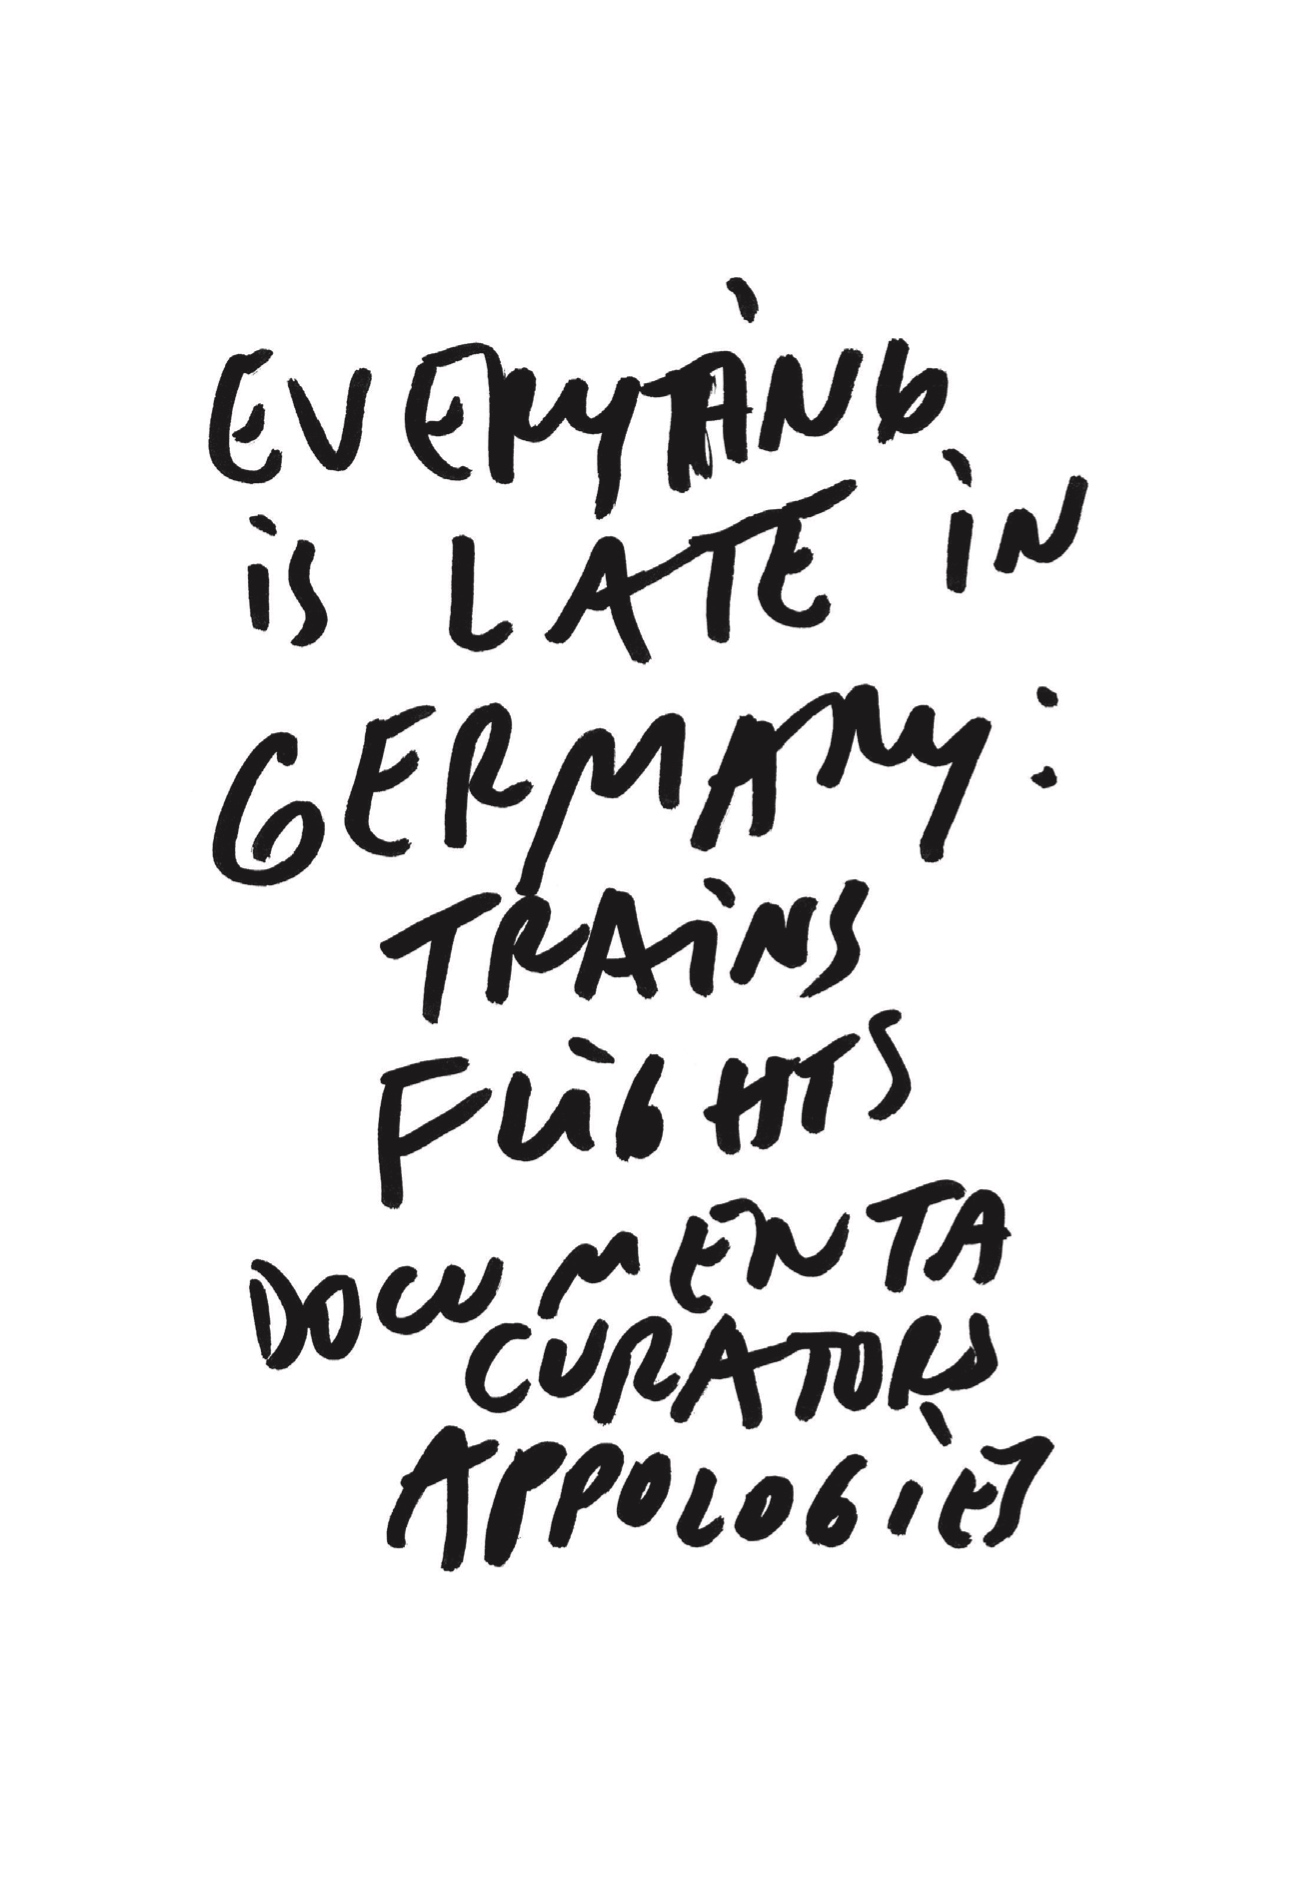 EVERYTHiNG
is LATE iN
GERMANY:
TRAiNS
FLiGHTS
DOCUMENTA
CURATORS
APPOLOGiES